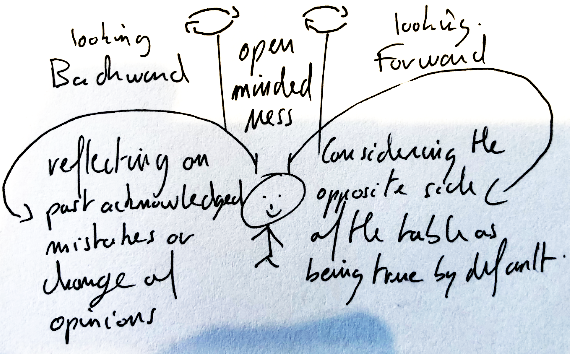 looking
Backward
open
minded
ness
looking
Forward
reflecting on
past acknowledged
mistakes or
change of
opinions
Considering the
opposite side
of the table as
being true by default.